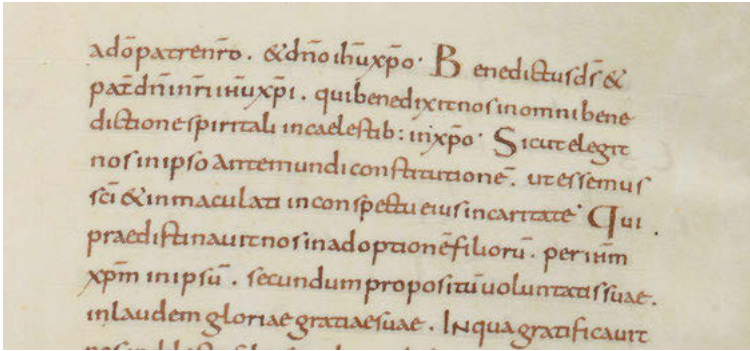 adōpatrenr̄o. &dn̄o ihūxp̄o. Benedictusd̄s &
pat̄dn̄inr̄iih̄uxp̄i. quibenedixitnosinomnibene
dictionespiritali incaelestib: inxp̄o. Sicutelegit
nosinipsoantemundiconstitutionē. utessemus
sc̄i &inmaculati inconspectueiusincaritate. Qui
praedistinauitnosinadoptionēfiliorū. perih̄m
xp̄m inipsū. secundumpropositūuoluntatissuae.
inlaudemgloriaegratiaesuae. Inquagratificauit